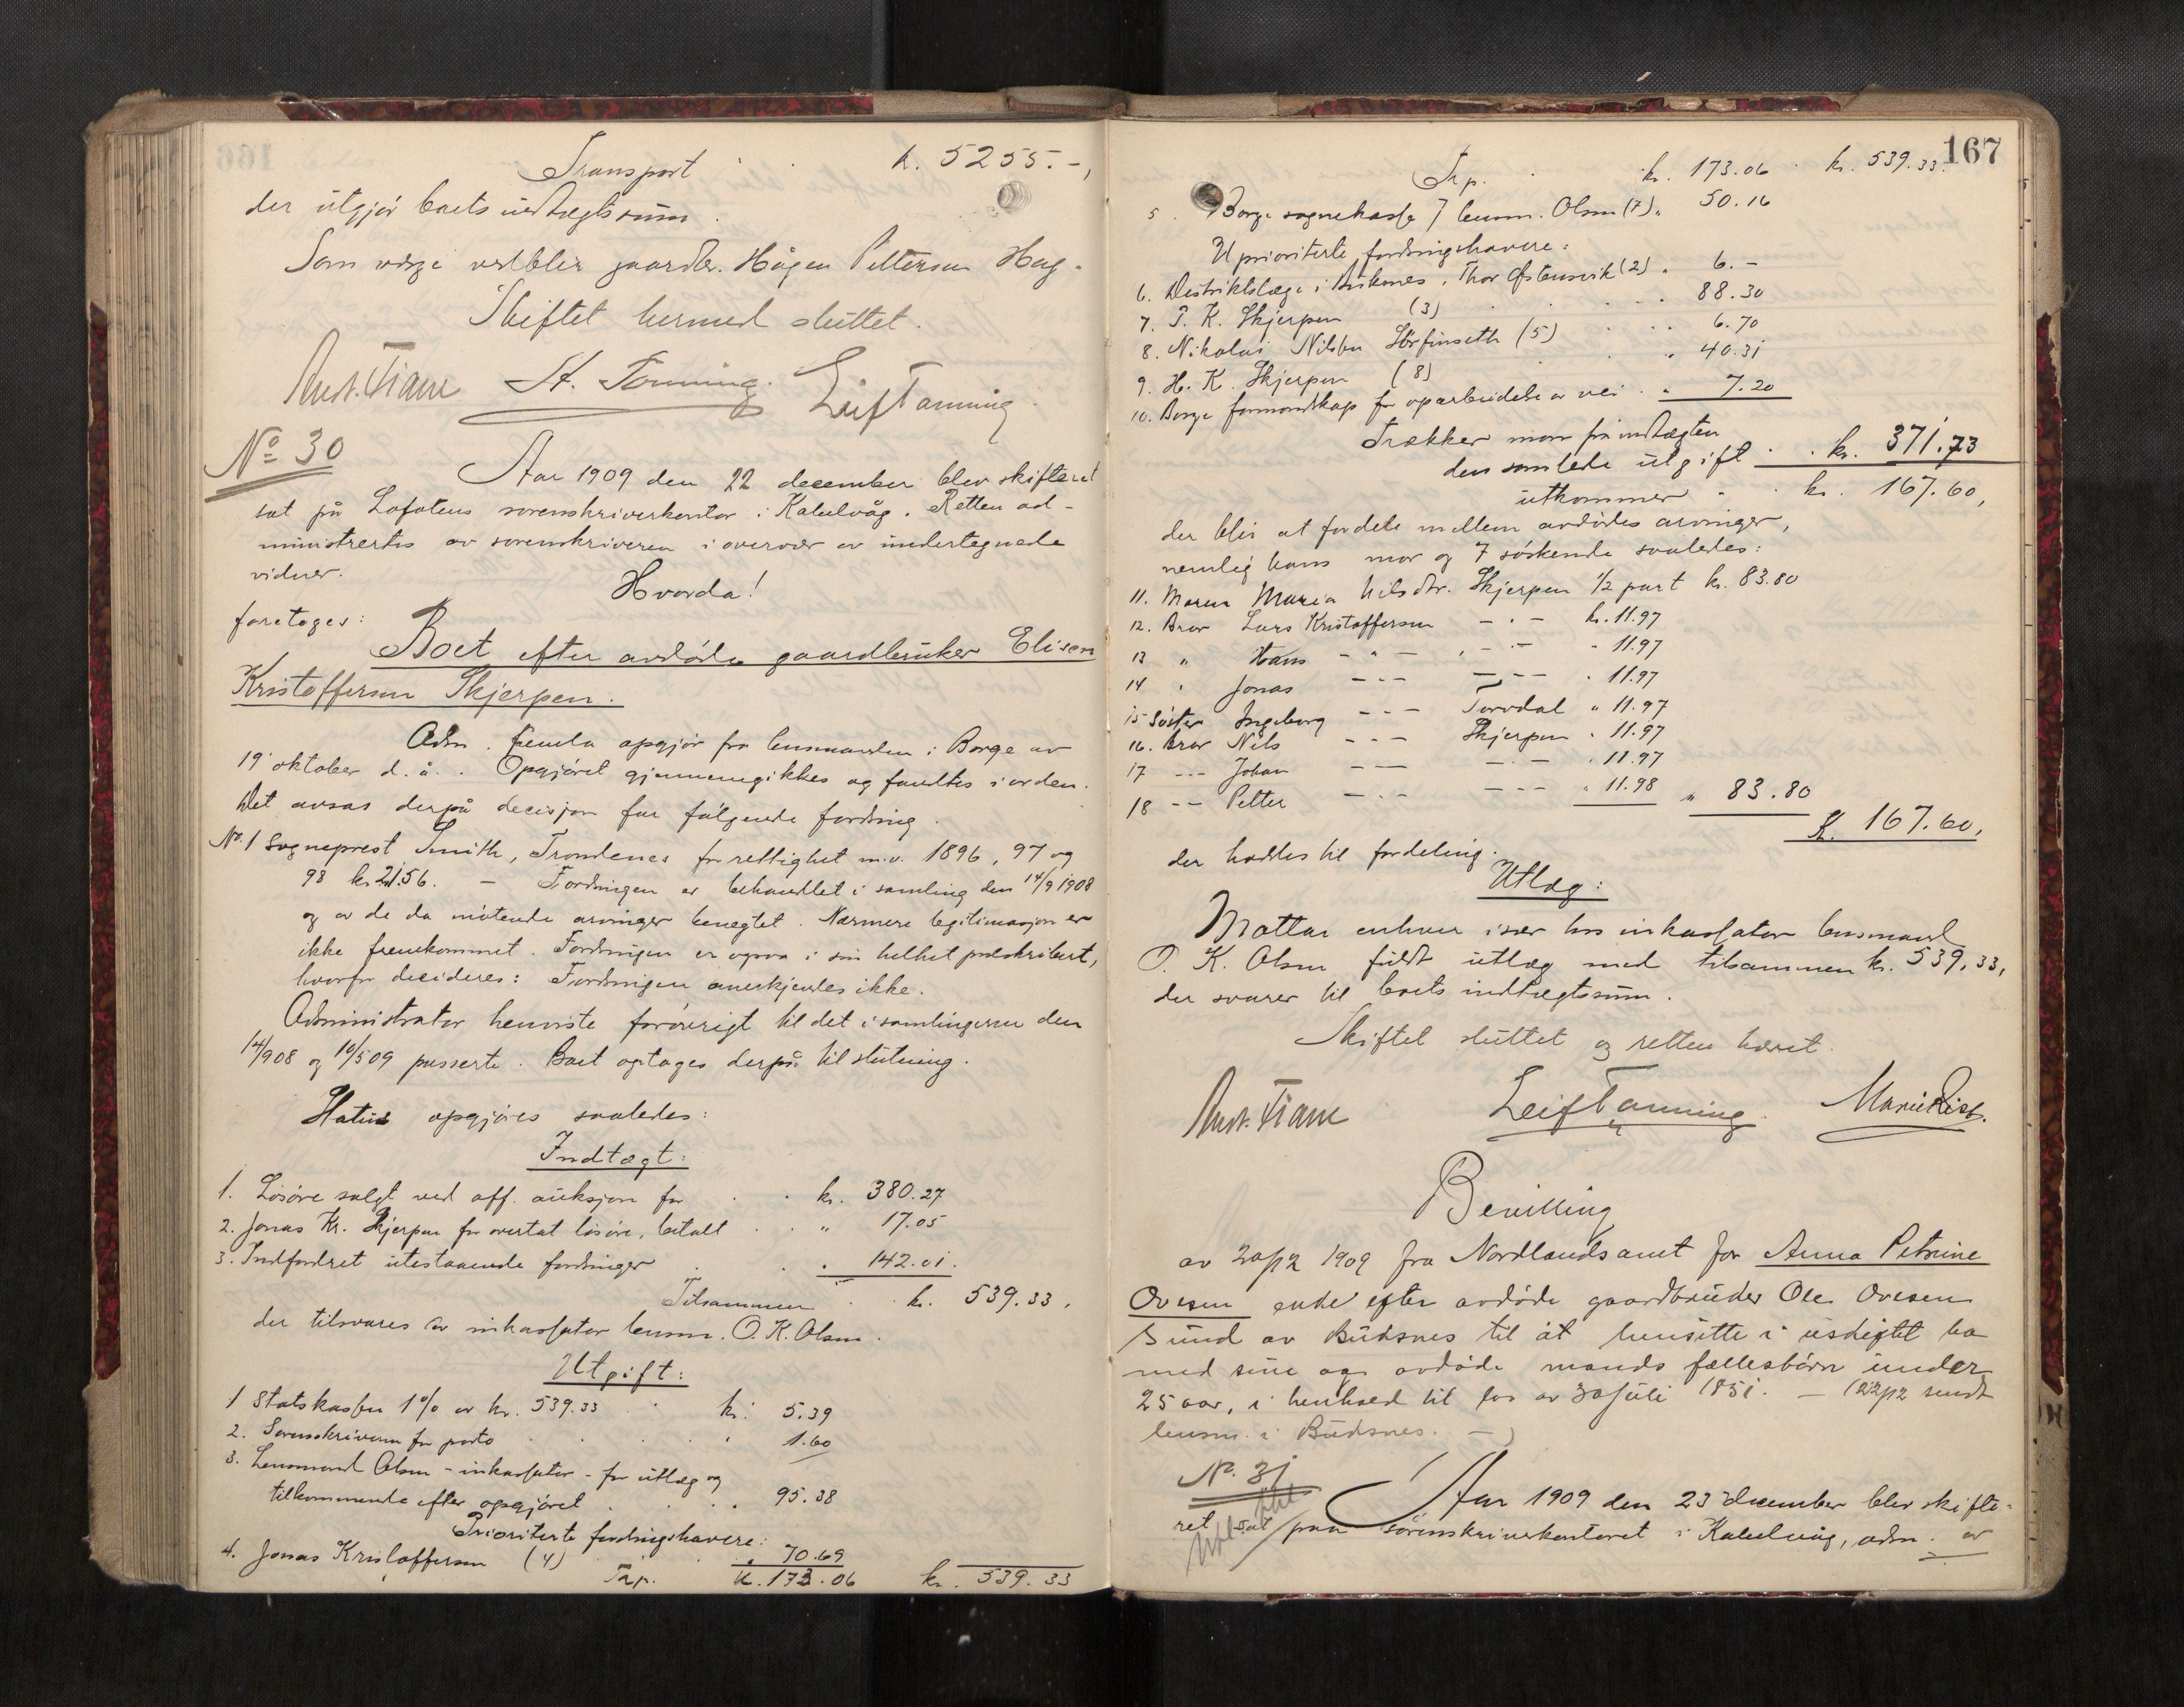 Transport . . k. 5255.-,
der utgjør boets indtægtssum.
Som værge vedblir gaardbr. Hågen Pettersen Hag.
Skiftet hermed sluttet.
St. Tønning. Leif Tønning.
No 30
Aar 1909 den 22 december blev skifteret
sat på Lofotens sorenskriverkontor i Kabelvåg. Retten ad-
ministrertes av sorenskriveren i overvær av undertegnede
vidner.
Hvorda!
foretoges:
Boet efter avdøde gaardbruker Elisen
Kristoffersen Skjerpen.
Adm. fremla opgjør fra lensmanden i Borge av
19 oktober d. å. Opgjøret gjennemgikkes og fandtes i orden.
Det avsas derpå decisjon for følgende fordring.
No. 1 Sogneprest Smith, Trondenes for rettighet m.v. 1896, 97 og
98 kr. 21.56. - Fordringen er behandlet i samling den 14/9 1908
og av de da møtende arvinger benegtet. Nærmere legitimasjon er
ikke fremkommet. Fordringen er ogsaa i sin helhet præskribert,
hvorfor decideres: Fordringen anerkjendes ikke.
Administrator henviste forøvrigt til det i samlingerne den
14/9 08 og 10/5 09 passerte. Boet optages derpå til slutning.
Status opgjøres saaledes:
Indtægt:
1. Løsøre solgt ved off. auksjon for . . kr. 380.27
2. Jonas Kr. Skjerpen for overtat løsøre, betalt . . " 17.05
3. Indfordret utestaaende fordringer . . . 142.01.
Tilsammen . . kr. 539.33,
der tilsvares av inkassator lensm. O. K. Olsen.
Utgift:
1 Statskassen 1% av kr. 539.33 . kr. 5.39
2. Sorenskriveren for porto . . . . " 1.60
3. Lensmand Olsen - inkassator - for utlæg og
tilkommende efter opgjøret . . . . 95.38
Prioriterte fordringshavere:
4. Jonas Kristoffersen (4) . " 70.69
Trp. kr. 173.06 kr. 539.33
167
Trp. . kr. 173.06 . kr. 539.33.
5. Borge sognekasse v/ lensm. Olsen (7) " 50.16
Uprioriterte fordringshavere:
6. Distriktslæge i Buksnes, Thor Østensvik (2) . 6.-
7. P. K. Skjerpen (3) . . . . 88.30
8. Nikolai Nilsen Sørfinseth (5) . . . 6.70
9. H. K. Skjerpen (8) . " 40.31
10. Borge formandskap for oparbeidelse av vei . " 7.20
Trækker man fra indtægten
den samlede utgift . . kr. 371.73
utkommer . . kr. 167.60,
der blir at fordele mellem avdødes arvinger,
nemlig hans mor og 7 søskende saaledes:
11. Moren Maria Nilsdtr. Skjerpen 1/2 part kr. 83.80
12. Bror Lars Kristoffersen - . - kr. 11.97
13 " Hans - " - . - . - " 11.97
14 . Jonas - - - - - - . 11.97
15 Søster Ingeborg - - - Torvdal " 11.97
16. Bror Nils - - - Skjerpen . 11.97
17 - - - Johan - - - - - . 11.97
18 - - Petter - . - - - - " 11.98 " 83.80
K. 167.60,
der hadtes til fordeling.
Utlæg:
Mottar enhver især hos inkassator lensmand
O. K. Olsen fuldt utlæg med tilsammen kr. 539.33,
der svarer til boets indtægtssum.
Skiftet sluttet og retten hævet.
Leif Tønning. Marie Rist.
Bevilling
av 20/12 1909 fra Nordlands amt for Anna Petrine
Ovesen enke efter avdøde gaardbruker Ole Ovesen
Sund av Buksnes til at hensitte i uskiftet bo
med sine og avdøde mands fællesbørn under
25 aar, i henhold til lov av 30 juli 1851. - (22/12 sendt
lensm. i Buksnes. -)
No. 31
Aar 1909 den 23 december blev skifte-
ret sat paa sorenskriverkontoret i Kabelvåg, adm. av